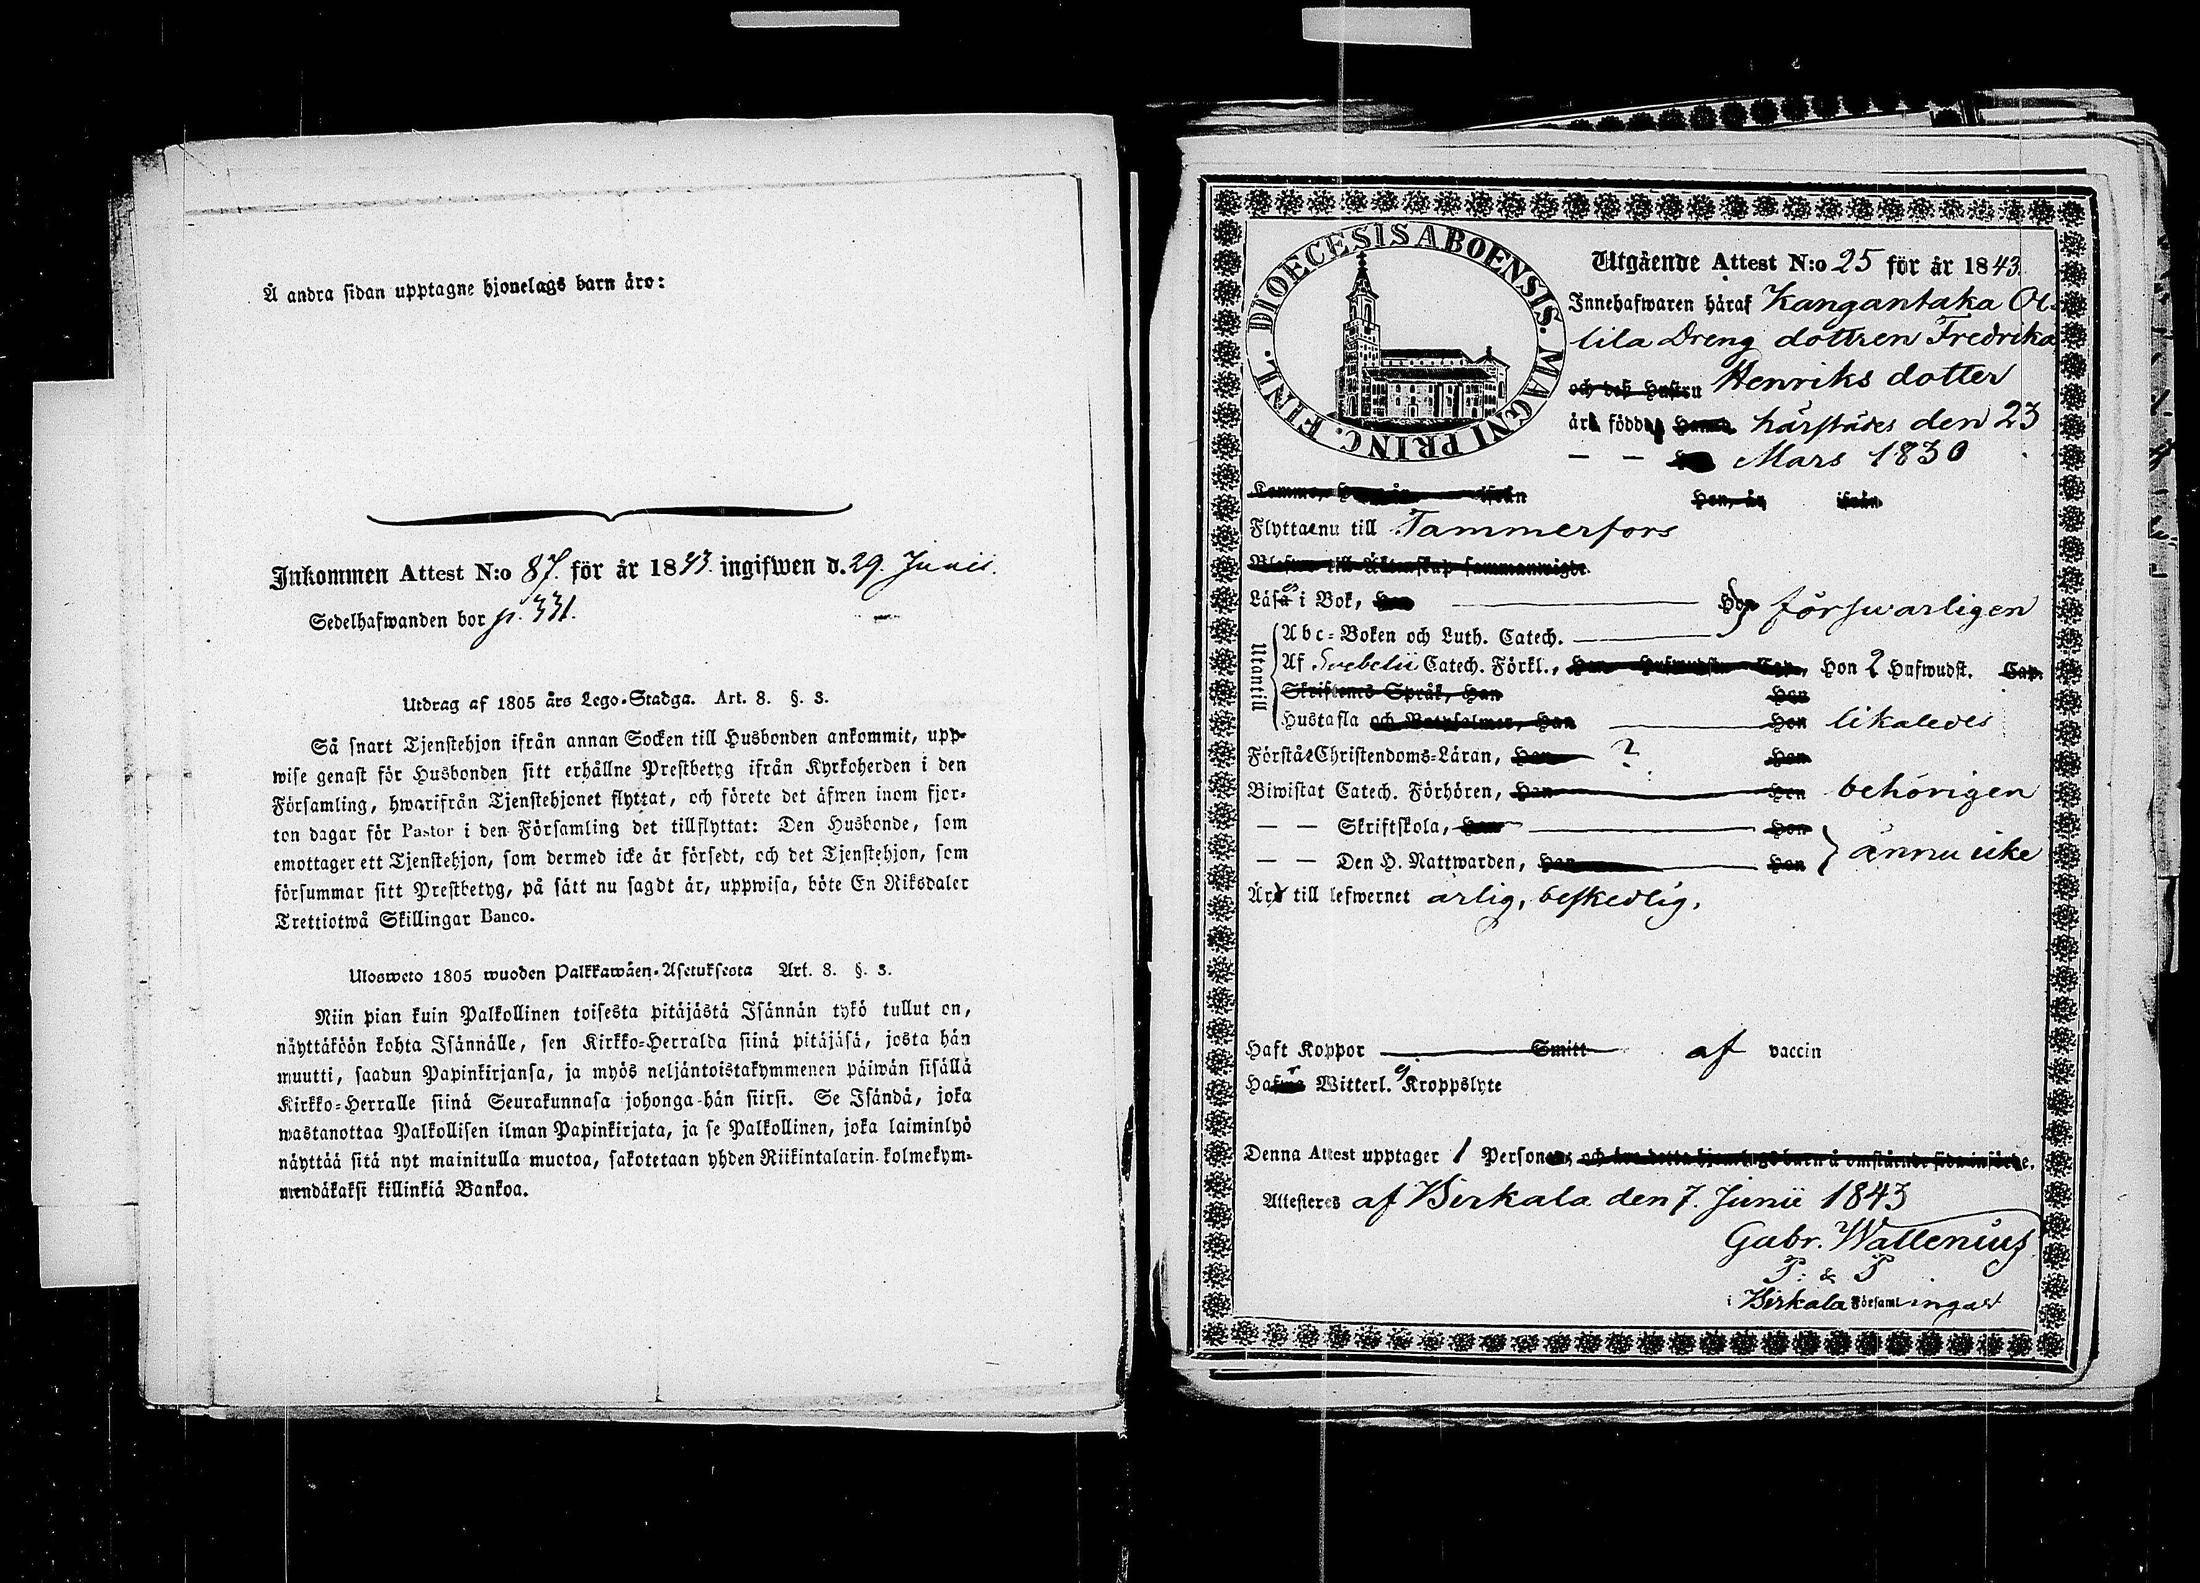 Å andra sidan upptagne hjonelags barn äro:
Inkommen Attest N:o 87. för år 1843. ingifwen d. 29. Junii.
Sedelhafwanden bor p. 331.
Utdrag af 1805 års Lego-Stadga. Art. 8. §. 3.
Så snart Tjenstehjon ifrån annan Socken till Husbonden ankommit, upp-
wise genast för Husbonden sitt erhållne Prestbetyg ifrån Kyrkoherden i den
Församling, hwarifrån Tjenstehjonet flyttat, och förete det äfwen inom fjor-
ton dagar för Pastor i den Församling det tillflyttat: Den Husbonde, som
emottager ett Tjenstehjon, som dermed icke är försedt, och det Tjenstehjon, som
försummar sitt Prestbetyg, på sätt nu sagdt är, uppwisa, böte En Riksdaler
Trettiotwå Skillingar Banco.
Ulosweto 1805 wuoden Palkkawäen-Asetuksesta Art. 8. §. 3.
Niin pian kuin Palkollinen toisesta pitäjästä Isännän tykö tullut on,
näyttäköön kohta Isännälle, sen Kirkko-Herralda siinä pitäjäsä, josta hän
muutti, saadun Papinkirjansa, ja myös neljäntoistakymmenen päiwän sisällä
Kirkko-Herralle siinä Seurakunnasa johonga hän siirsi. Se Isändä, joka
wastanottaa Palkollisen ilman Papinkirjata, ja se Palkollinen, joka laiminlyö
näyttää sitä nyt mainitulla muotoa, sakotetaan yhden Riikintalarin kolmekym-
mendäkaksi killinkiä Bankoa.
DIOECESIS ABOENSIS. MAGNI PRINC. FINL.
Utgående Attest N:o 25 för år 1843
Innehafwaren häraf Kangantaka Ol-
lila Dreng dottren Fredrika
och dess Hustru Henriks dotter
är född härstädes den 23
— — Mars 1830
Komme, ifrån Hon, år ifrån
Flyttar nu till Tammerfors
Blefwo till Äktenskap sammanwigde.
Läser i Bok, Hon försvarligen
Utantill
Abc-Boken och Luth. Catech.
Af Svebelii Catech. Förkl., Han Hufwudst. Cap. Hon 2 Hufwudst. Cap.
Skriftenes Språk, Han Hon
Hustafla och Botpsalmer, Han Hon likaledes
Förstår Christendoms-Läran, Han ? Hon
Biwistat Catech. Förhören, Han Hon behörigen
— — Skriftskola, Han Hon
— — Den H. Nattwarden, Han Hon ännu icke
Är till lefwernet ärlig, beskedlig.
Haft Koppor Smitt af vaccin
Hafwa Witterl. Kroppslyte
Denna Attest upptager 1 Person och äro detta hjonelags barn å omstående sida införde.
Attesteres af Birkala den 7. Junii 1843
Gabr. Wallenius
P: & P
i Birkala Församlingar